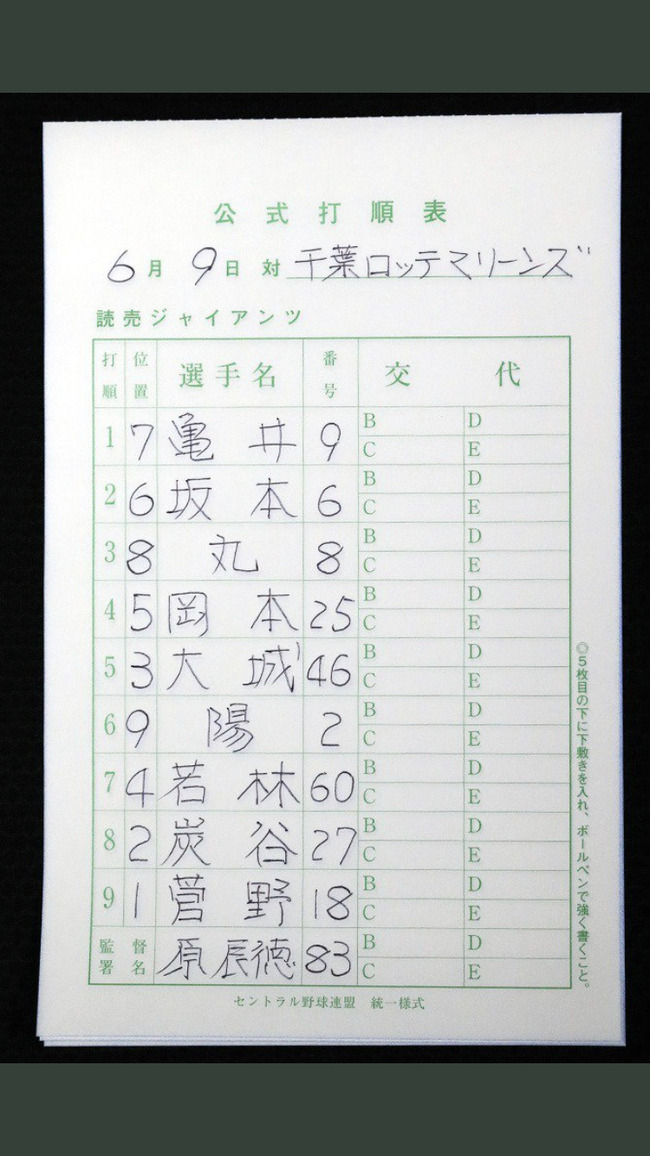 公式打順表
6月 9日 対 千葉ロッテマリーンズ
読売ジャイアンツ
打順 位置 選手名 番号 交代
1 7 亀井 9 B D
C E
2 6 坂本 6 B D
C E
3 8 丸 8 B D
C E
4 5 岡本 25 B D
C E
5 3 大城 46 B D
C E
6 9 陽 2 B D
C E
7 4 若林 60 B D
C E
8 2 炭谷 27 B D
C E
9 1 菅野 18 B D
C E
監督署名 原辰徳 83 B D
C E
セントラル野球連盟 統一様式
◎5枚目の下に下敷きを入れ、ボールペンで強く書くこと。